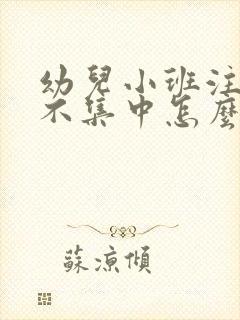 幼兒小班注
不集中怎麼
蘇涼傾